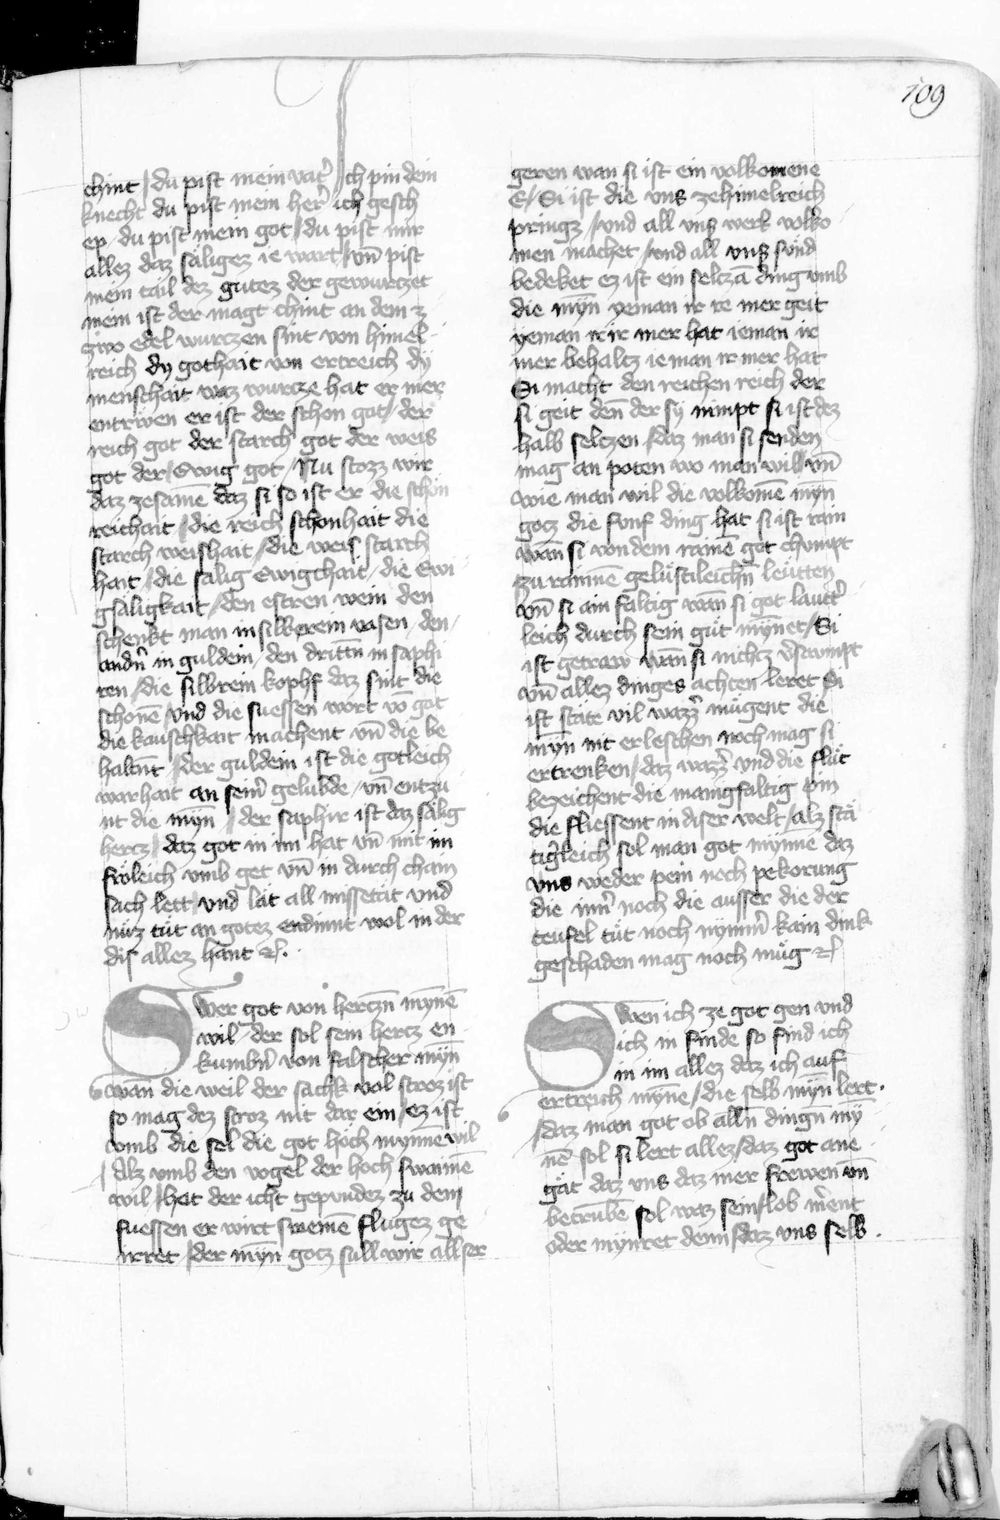 109
chint / du pist mein vat̾ / Ich pin dein
knecht du pist mein her̾ ich gesch
ep du pist mein got / du pist mir
allez daz säligez ie wart / vn̄ pist
mein tail dez gutez der gewurtzet
mein ist der magt chint an dem z
zwo edel wurczen sint von himel
reich dy gothait von ertreich dy
menschait waz wurcze hat er mer
entriwen er ist der schon got / der
reich got der starch got der weis
got der / Ewig got / Nu stozz wir
daz zesamē daz si so ist er die schon
reichait / die reich schonhait die
starch weishait / die weis starch
hait / die salig Ewigchait / die Ewi
gsaligkait / den estren wein den
schenkt man in silbrem vasen / den
andn̄ in guldein / den drittn̄ in saphi
ren / die silbrein kophf daz sint die
schonē / vnd die suessen wort vō got
die kauschkait machent vn̄ die be
haltn̄t / der guldein ist die gotleich
warhait an sein̄ gelubde / vn̄ entzu
nt die mẏn̄ / der saphir ist daz sälig
hertz / daz got in im hat vn̄ mit im
fröleich vmb get vn̄ in durch chain
sach lett / vnd lät all missetät vnd
nüz tüt an gotez endinnt wol in der
dis allez hant ꝛc.
Swer got von hertzn̄ mẏnē
wil / der sol sein hertz en
kumbn̄ von falscher mẏn̄
wan die weil der sachk vol stroz ist
so mag dez stroz nit dar ein / ez ist
vmb die sel die got höch mynnē wil
/ Alz vmb den vogel der hoch swaimē
wil / hat der icht gepundez zu dem
fuessen er wirt swemē flugez ge
irret / der mẏn̄ gotz sull wir all ser
geren wan si ist ein volkomene
E / Si ist die vns ze himelreich
pringz / vnd all vns werk volko
men machet / vnd all vns sünd
bedeket ez ist ein seltzā ding vmb
die mẏn̄ yeman ir ie mer geit
yeman ir ir mer hat ieman ir
mer behaltz ieman ir mer hat
Si macht den reichen reich der
si geit den̄ der sy nimpt si ist dez
halb seltzen / daz man si senden
mag an poten wo man will vn̄
wie man wil die volkomē mẏn̄
gotz die funf ding hat si ist rain
wān si von dem rainē got chumpt
zu rainnē gelüstleichn̄ leütten
vn̄ si ain faltig wān si got lautt̾
leich durch sein güt mẏnet / Si
ist getraw wān si nichtz v̾sawmpt
vn̄ allez dinges achten leret Si
ist stäte vil wazz̾ mügent die
mẏn̄ nit erleschen noch mag si
ertrenken / daz wazz̾ vnd die flüt
bezeichent die manigfaltig pin
die fliessent in diser welt / alz stä
tigleich sol man got mẏnnē daz
vns weder pein noch pekorung
die inn̄ noch die ausser die der
teufel tüt noch nymm̄ kain dink
geschaden mag noch müg ꝛc
Swen ich ze got gen vnd
ich in finde so find ich
in im allez daz ich auf
ertreich mẏne / die selb mẏn̄ lert
/ daz man got ob alln̄ dingn mẏ
nē sol si lert allez / daz got ane
gät daz vns daz mer frewen vn̄
betrubē sol waz sein / lob m̾ent
oder mynret denn / daz vns selb